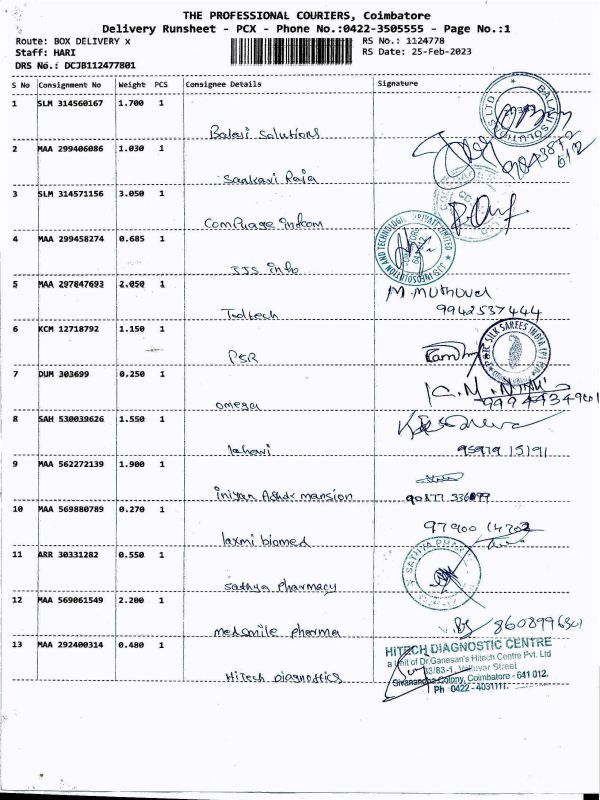 THE PROFESSIONAL COURIERS, Coimbatore
Delivery Runsheet - PCX - Phone No.:0422-3505555 - Page No.:1
Route: BOX DELIVERY x
RS No.: 1124778
Staff: HARI
RS Date: 25-Feb-2023
DRS No.: DCJB112477801
S No Consignment No Weight PCS Consignee Details Signature
1 SLM 314560167 1.700 1
Balaji Solutions
2 MAA 299406086 1.030 1
Sankari Raja
3 SLM 314571156 3.050 1
Compuage infocom
4 MAA 299458274 0.685 1
JJS info
5 MAA 297847693 2.050 1
M. Muthuvel
Trdtech 9942537444
6 KCM 12718792 1.150 1
PSR
SILK SAREES INDIA (P)
7 DUM 303699 0.250 1
omega
8 SAH 530039626 1.550 1
95979 15191
9 MAA 562272139 1.900 1
iniyan mansion 90877 336099
10 MAA 569880789 0.270 1
97900 14702
laxmi biomed
11 ARR 30331282 0.550 1
SATHYA PHAR
sathya pharmacy
12 MAA 569061549 2.200 1
medsmile pharma
13 MAA 292400314 0.480 1
HITECH DIAGNOSTIC CENTRE
a Unit of Dr.Ganesan's Hitech Centre Pvt. Ltd
33/83-1, Valluvar Street
HiTech Diagnostics
Sivanandha Colony, Coimbatore - 641 012.
Ph 0422-4031111.